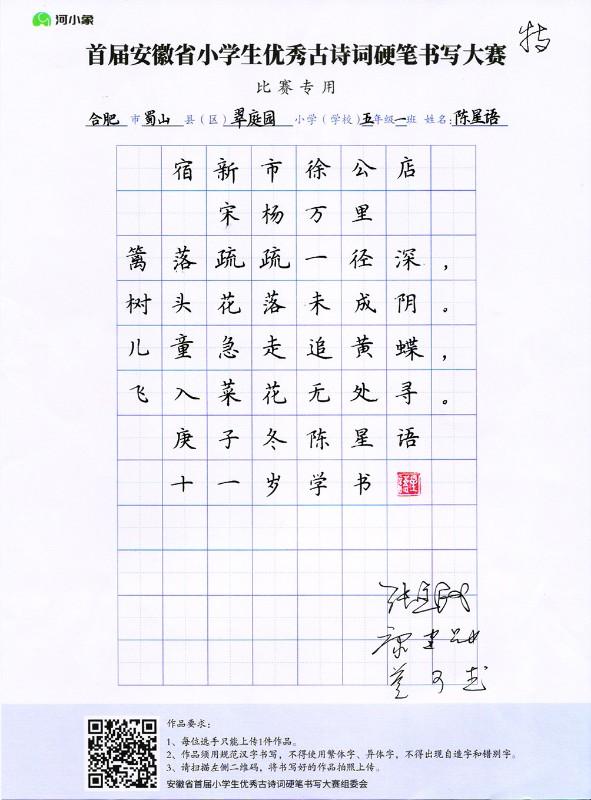 河小象
首届安徽省小学生优秀古诗词硬笔书写大赛
特
比赛专用
合肥 市 蜀山 县（区） 翠庭园 小学（学校） 五 年级 一 班 姓名: 陈星语
宿新市徐公店
宋杨万里
篱落疏疏一径深，
树头花落未成阴。
儿童急走追黄蝶，
飞入菜花无处寻。
庚子冬陈星语
十一岁学书
作品要求：
1、每位选手只能上传1件作品。
2、作品须用规范汉字书写，不得使用繁体字、异体字，不得出现自造字和错别字。
3、请扫描左侧二维码，将书写好的作品拍照上传。
安徽省首届小学生优秀古诗词硬笔书写大赛组委会